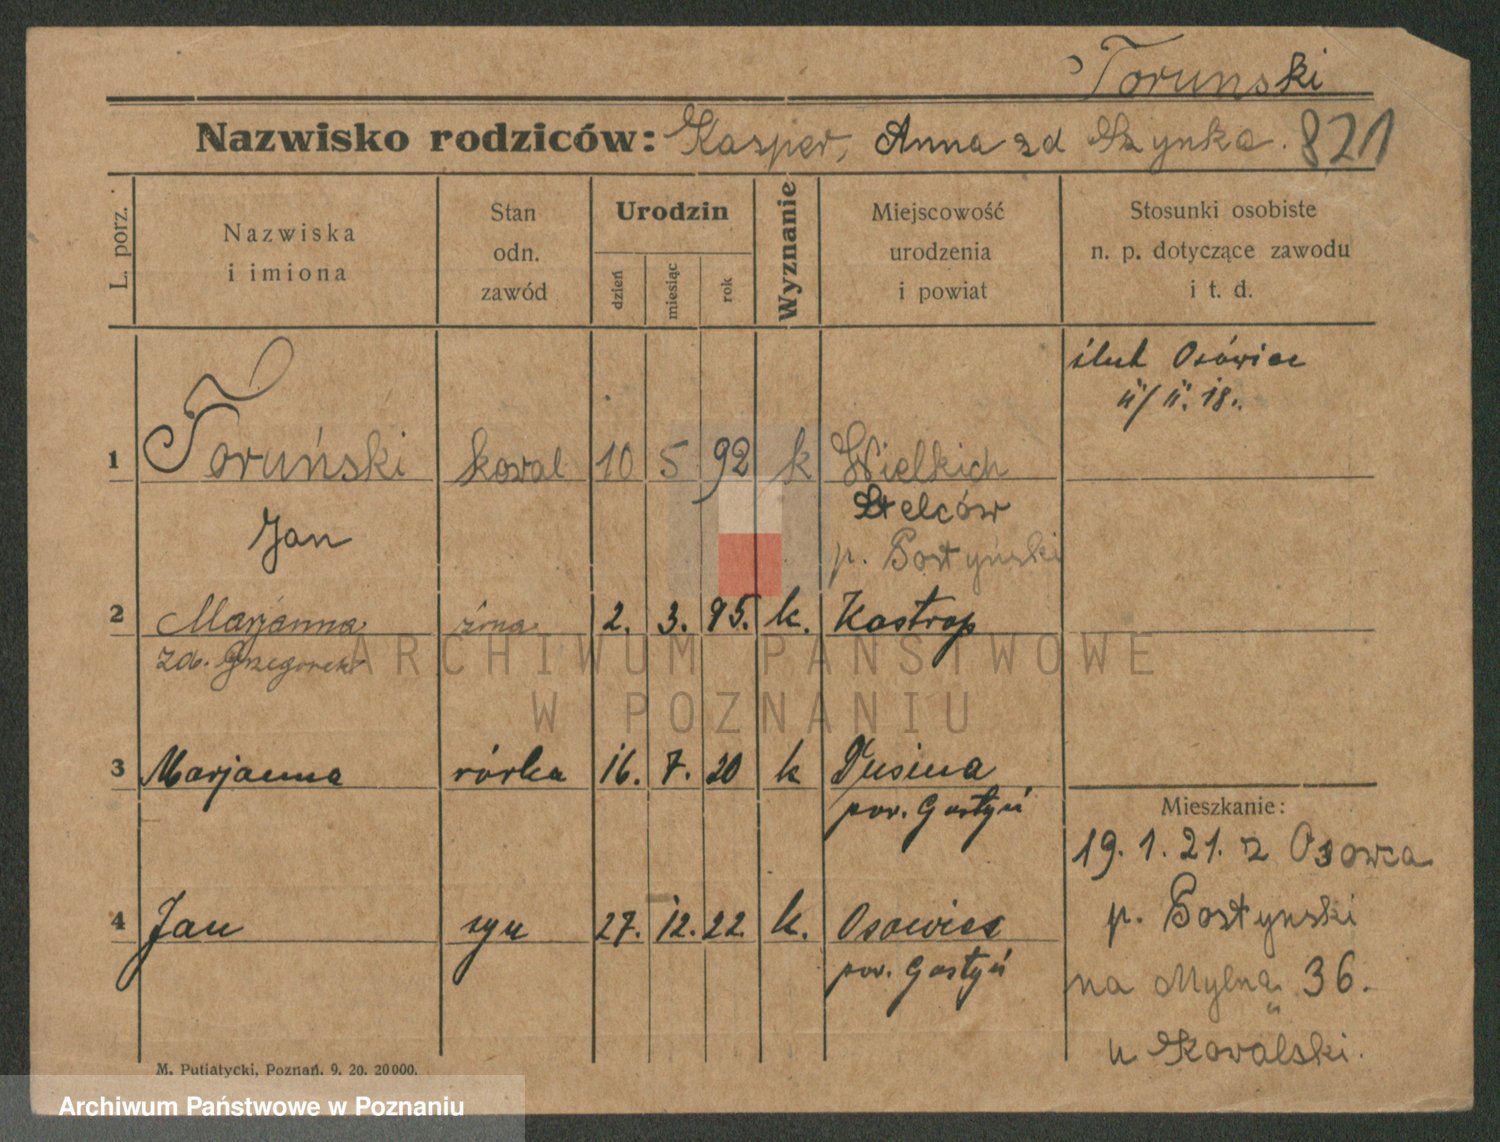 Toruński
Nazwisko rodziców: Kasper, Anna zd Szynka. 821
L. porz.
Nazwiska
i imiona
Stan
odn.
zawód
Urodzin
dzień
miesiąc
rok
Wyznanie
Miejscowość
urodzenia
i powiat
Stosunki osobiste
n. p. dotyczące zawodu
i t. d.
ślub Osówiec
11/11. 18.
1 Toruński kowal 10 5 92 k Wielkich
Jan
Strzelców
p. Gostyński
2 Marjanna żona 2. 3. 95. k. Kastrop
zd. Grzegorek
3 Marjanna córka 16. 7. 20 k Dusina
pow. Gostyń
4 Jan syn 27. 12. 22. k. Osowiec
pow. Gostyń
Mieszkanie:
19. 1. 21. z Osowca
p. Gostynski
na Mylną 36.
u Kowalski.
M. Putiatycki, Poznań. 9. 20. 20000.
ARCHIWUM PAŃSTWOWE
W POZNANIU
Archiwum Państwowe w Poznaniu